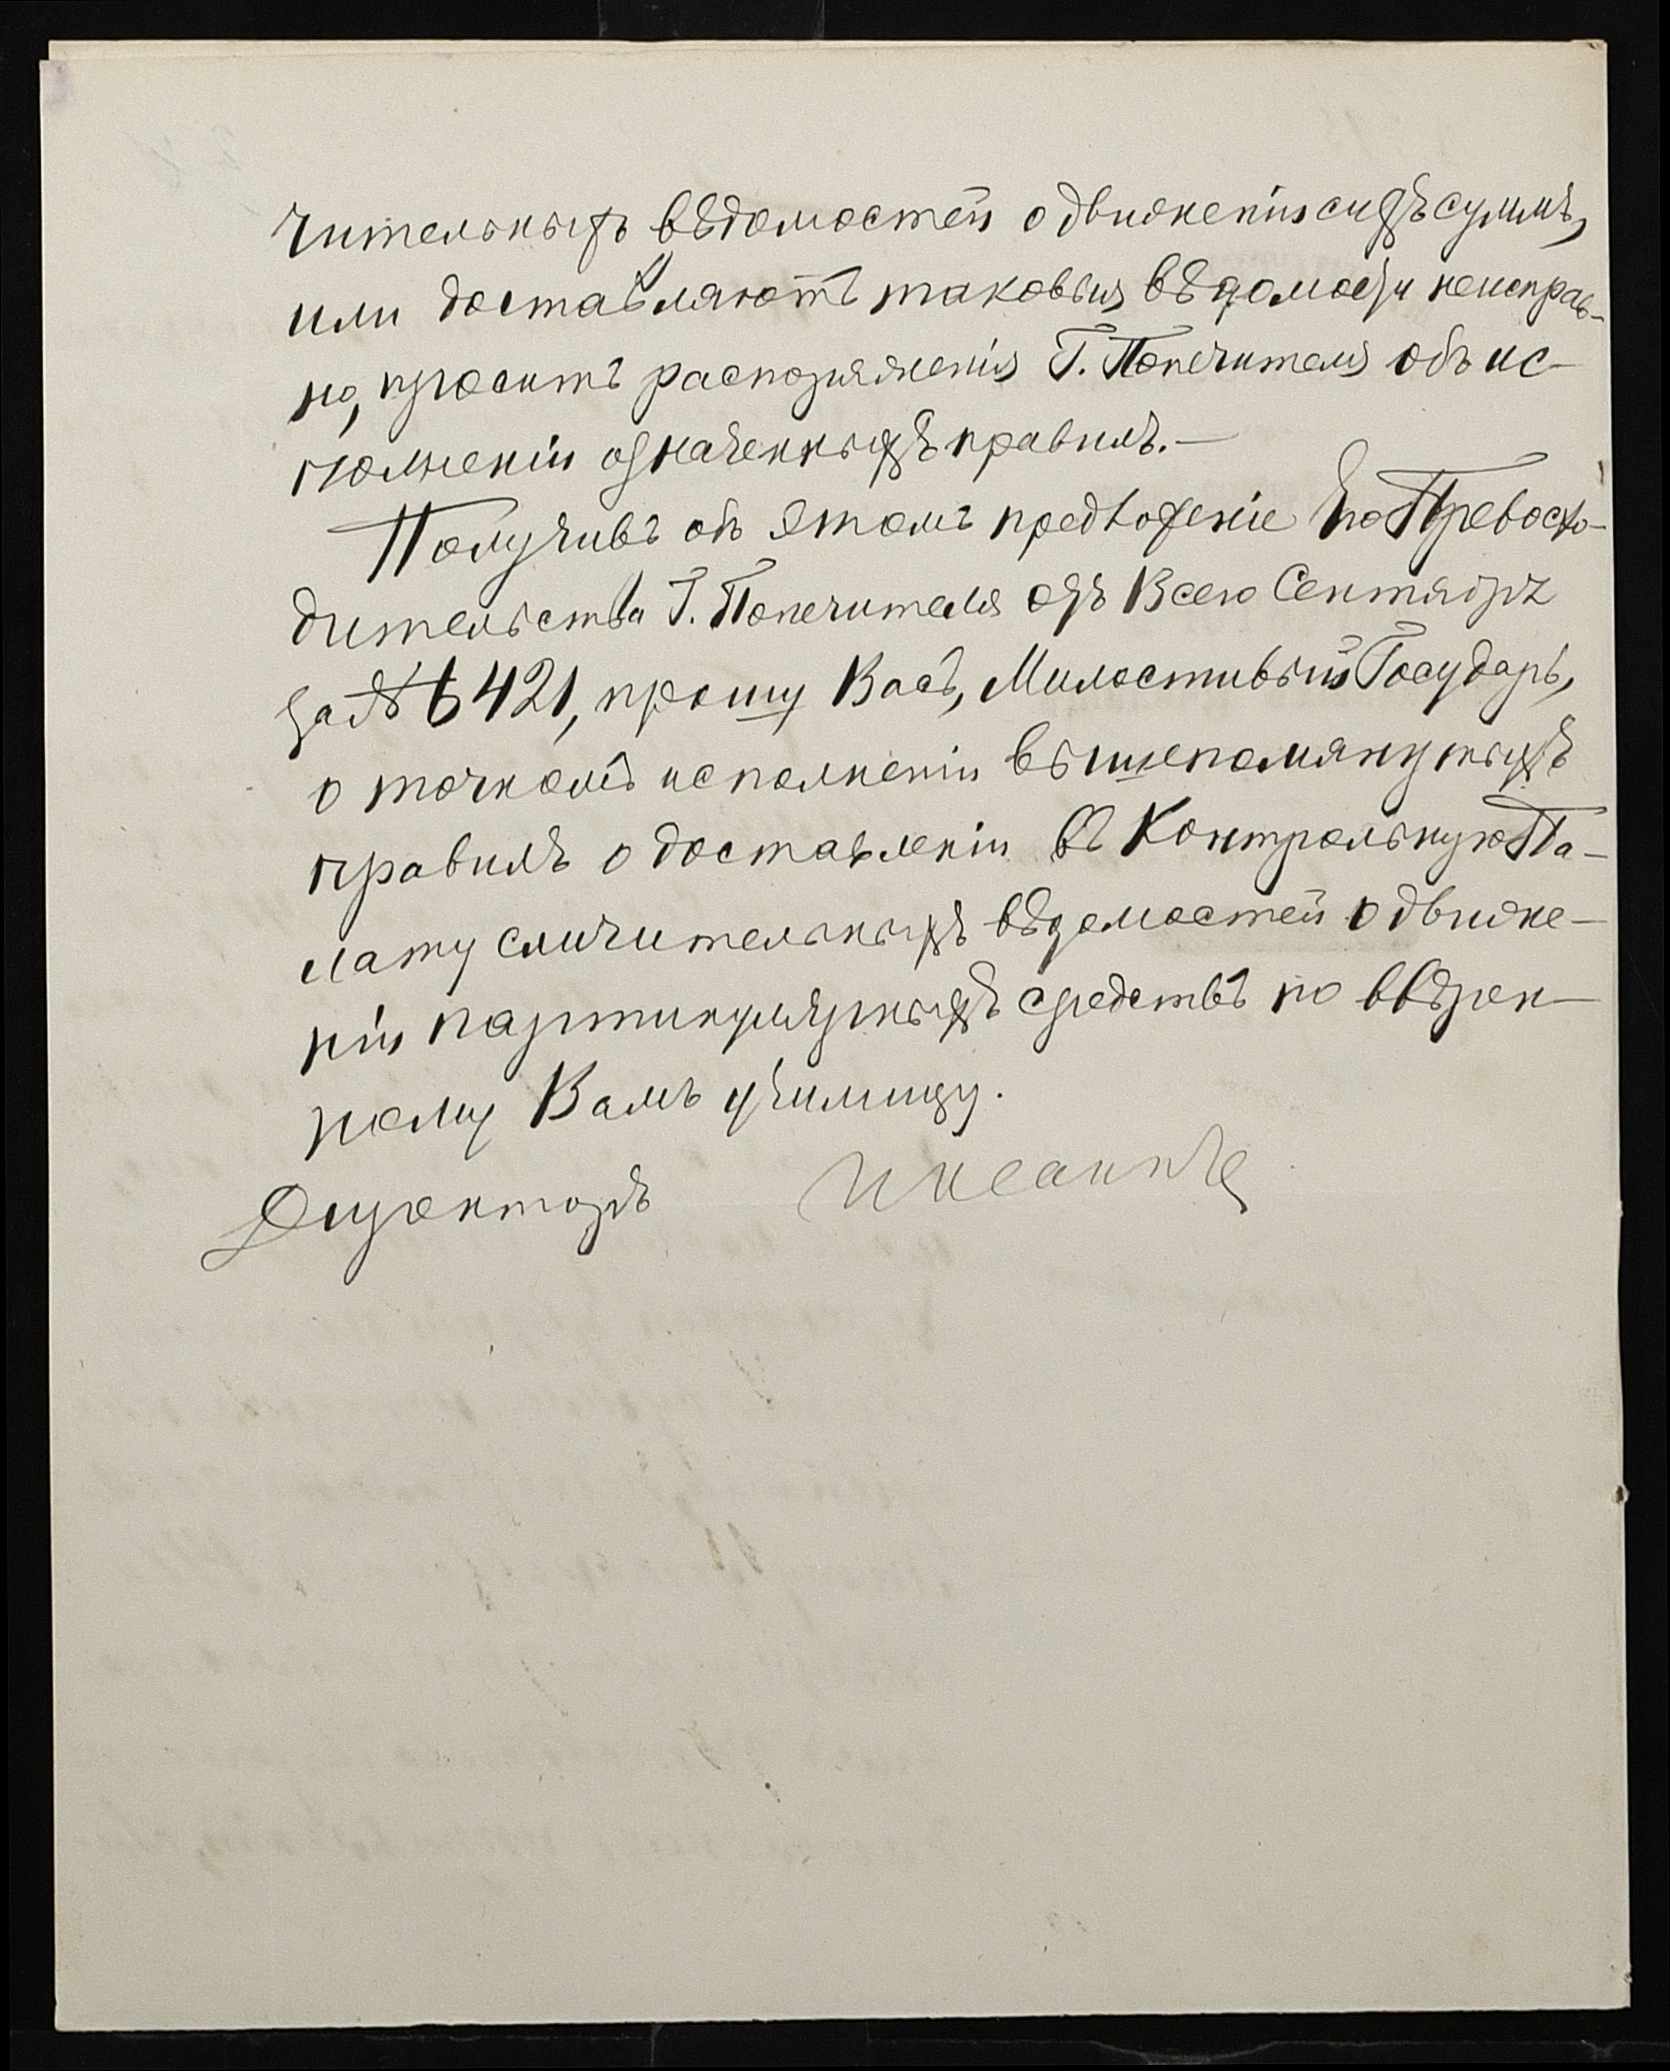 чительныхъ вѣдомостей о движеніи сихъ суммъ,
или доставляютъ таковыя вѣдомости неисправ-
но, проситъ распоряженія Г. Попечителя объ ис-
полненіи означенныхъ правилъ.—
Получивъ объ этомъ предложеніе Его Превосхо-
дительства Г. Попечителя отъ 18 сего Сентября
за № 6421, прошу Васъ, Милостивый Государь,
о точномъ исполненіи вышепомянутыхъ
правилъ о доставленіи въ Контрольную Па-
лату сличительныхъ вѣдомостей о движе-
ніи партикулярныхъ средствъ по ввѣрен-
ному Вамъ училищу.
Директоръ